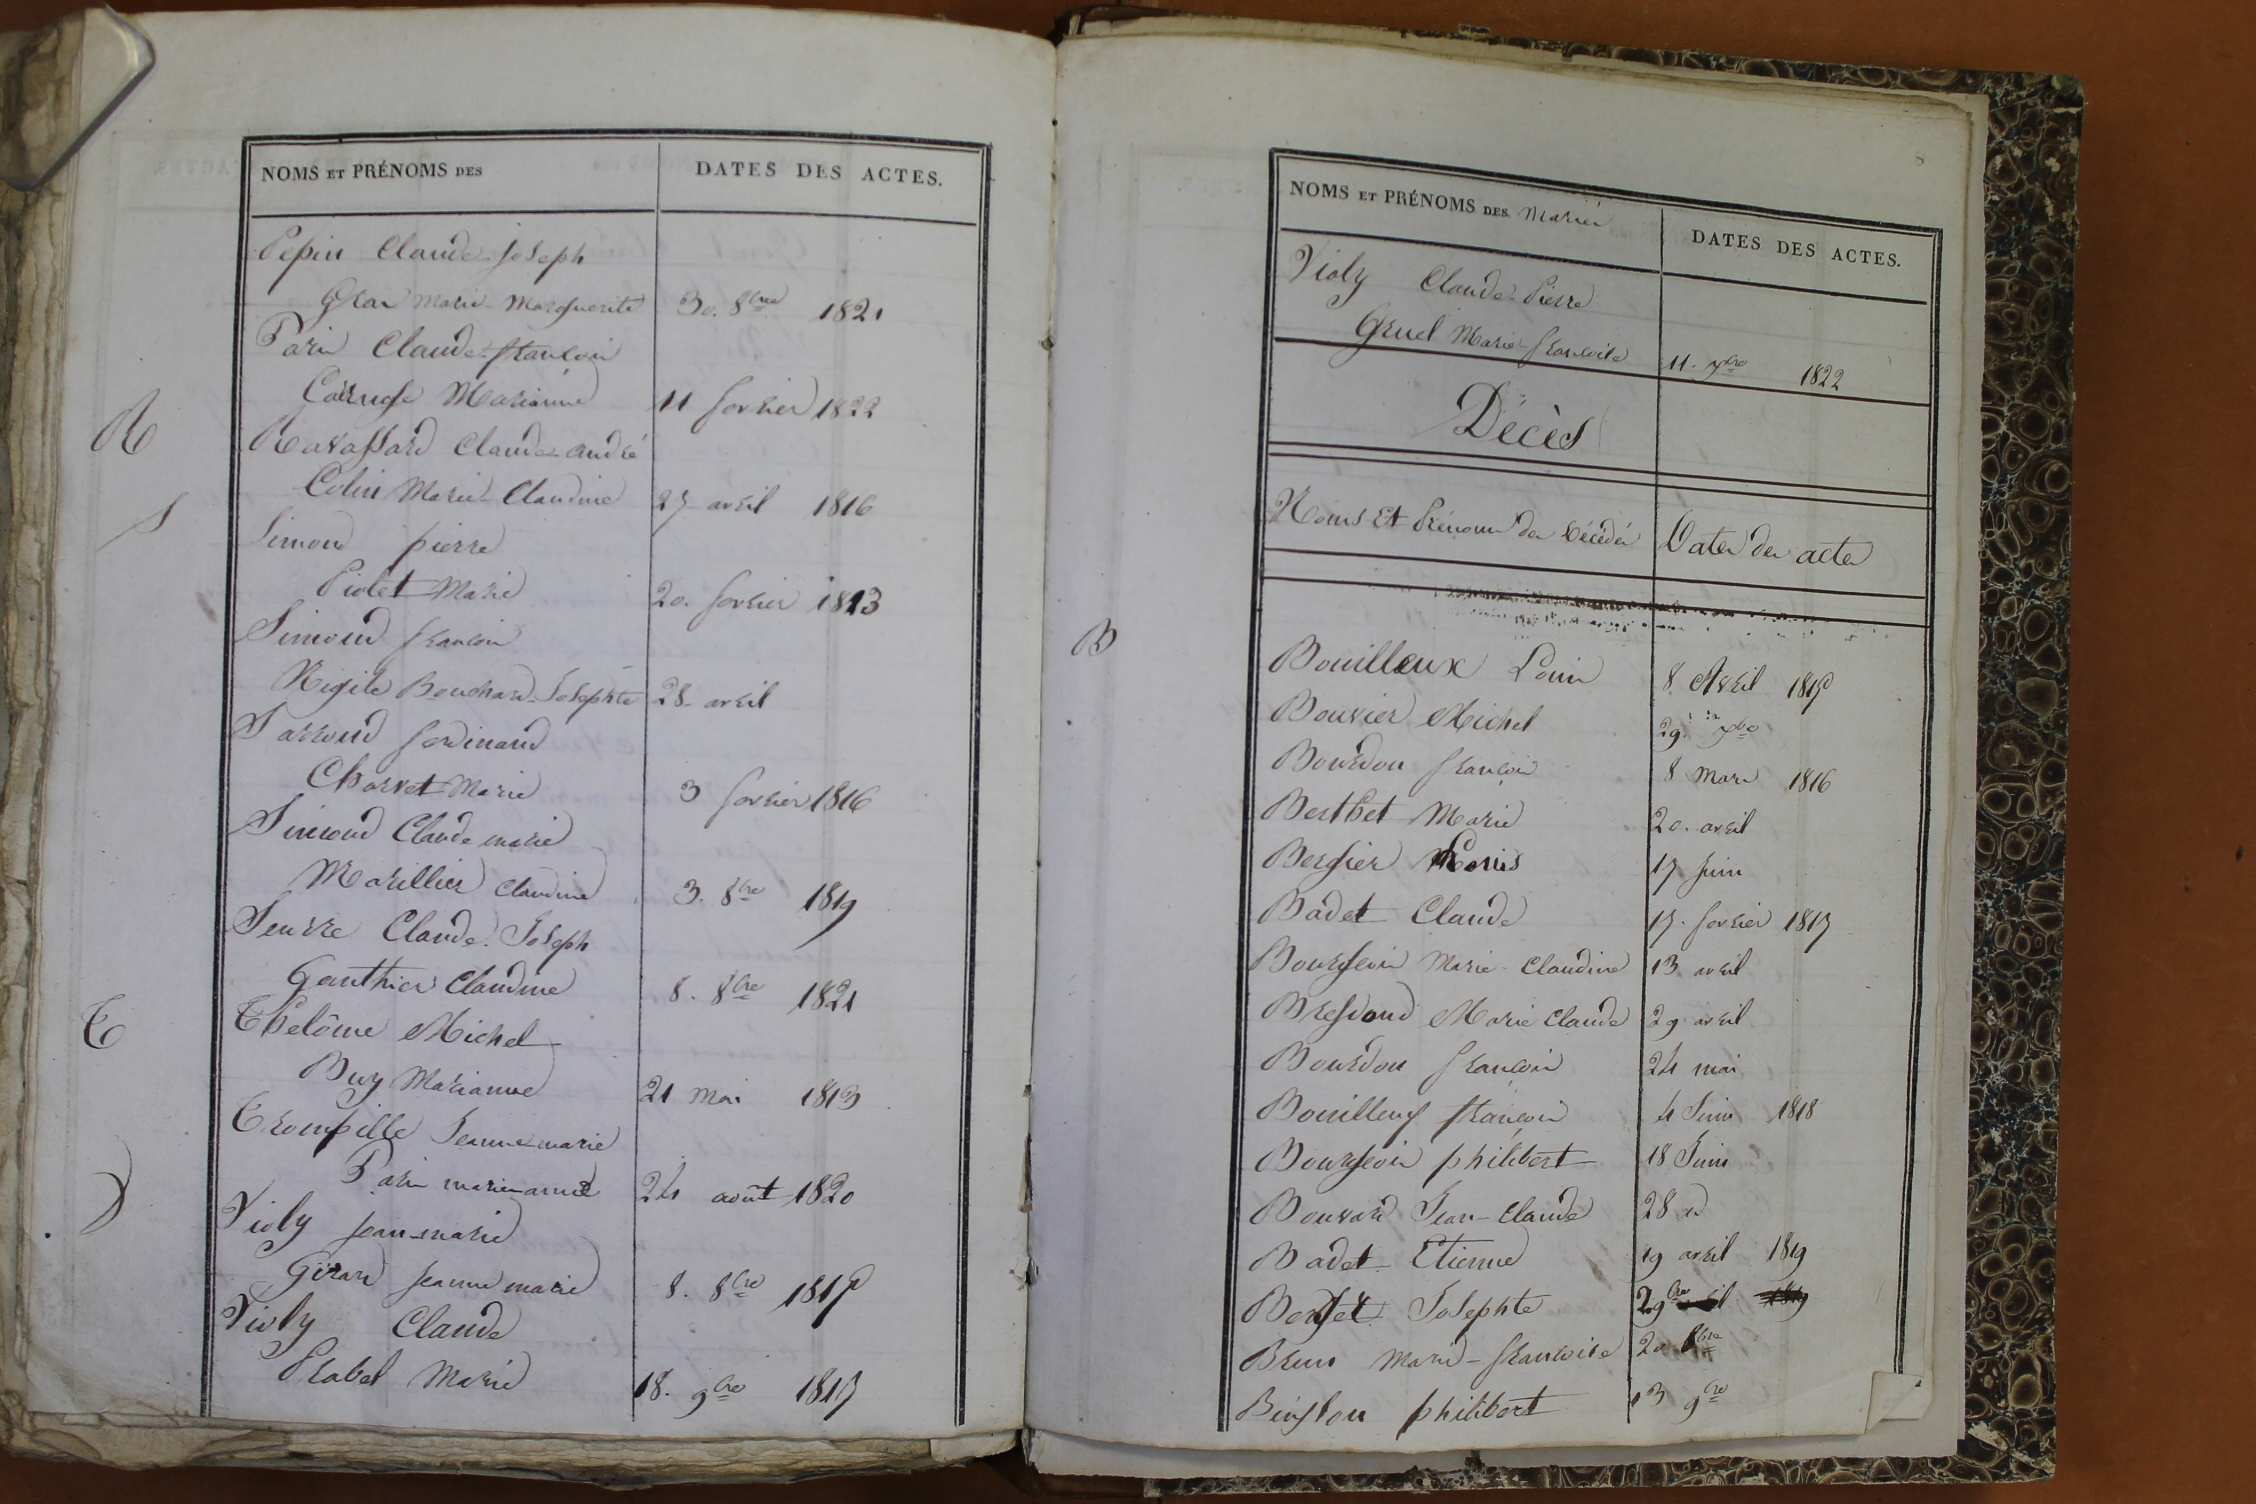 NOMS ET PRÉNOMS DES DATES DES ACTES.
Pepin Claude-Joseph
Gros Marie-Marguerite 30. 8bre 1821
Parin Claude-françois
Carruge Marianne 11 fevrier 1822
R
Ravassard Claude-andré
Colin Marie-Claudine 27 avril 1816
S
Simond pierre
Piolet Marie 20. fevrier 1813
Simond françois
Bouchard-Josephte 28 avril
Sarrond ferdinand
Charvet Marie 3 fevrier 1816
Simond Claude marie
Marillier Claudine 3. 8bre 1819
Seuvre Claude-Joseph
Gauthier Claudine 8. 8bre 1821
T
Thelôme Michel
Buy Marianne 21 mai 1813
Trompille Jeanne marie
Parin marie-anne 24 août 1820
V
Violy jean-marie
Girard jeanne marie 8. 8bre
Violy Claude
Prabel Marie 18. 9bre 1817
8
NOMS ET PRÉNOMS DES Mariés DATES DES ACTES.
Violy Claude-Pierre
Gruel Marie-francoise 11. 7bre 1822
Décès
Noms Et Prénoms des Décédés Dates des actes
B
Bouilleux Louis 8 Avril
Bouvier Michel 29. 7bre
Bourdon françois 8 Mars 1816
Berthet Marie 20. avril
Bergier Louis 17 Juin
Badet Claude 17. fevrier 1817
Bourgeois Marie-Claudine 13 avril
Marie Claude 29 avril
Bourdon françois 24 mai
Bouilleux françois 4 Juin 1818
Bourgeois philibert 18 Juin
Bouvard Jean-Claude 28 id
Badet Etienne 19 avril 1819
Berget Josephte
Brun Marie-francoise 20 8bre
philibert 13 9bre